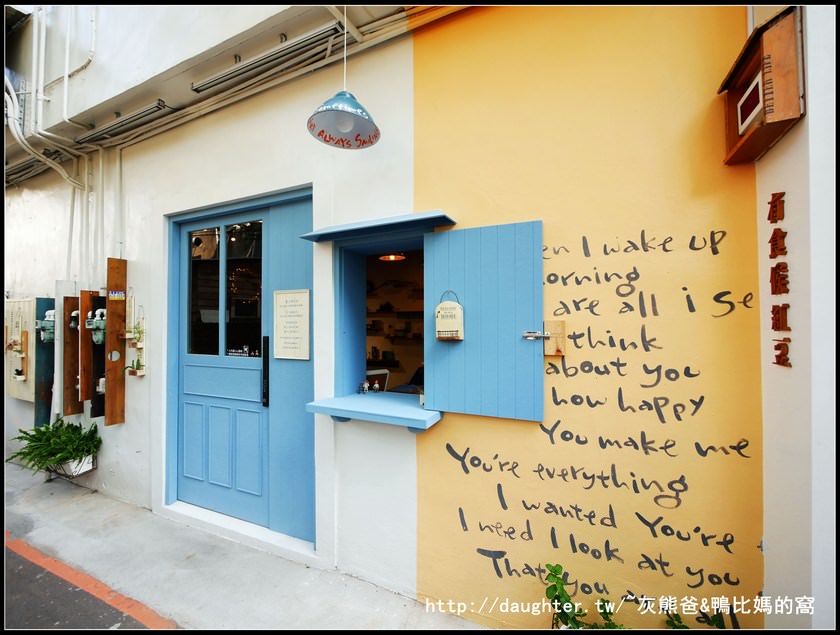 ALWAYS
en I wake up
orning
are all i se
think
about you
how happy
You make me
You're everything
I wanted You're
I need I look at you
That you
you
all
有食候紅豆
http://daughter.tw/~灰熊爸&鴨比媽的窩